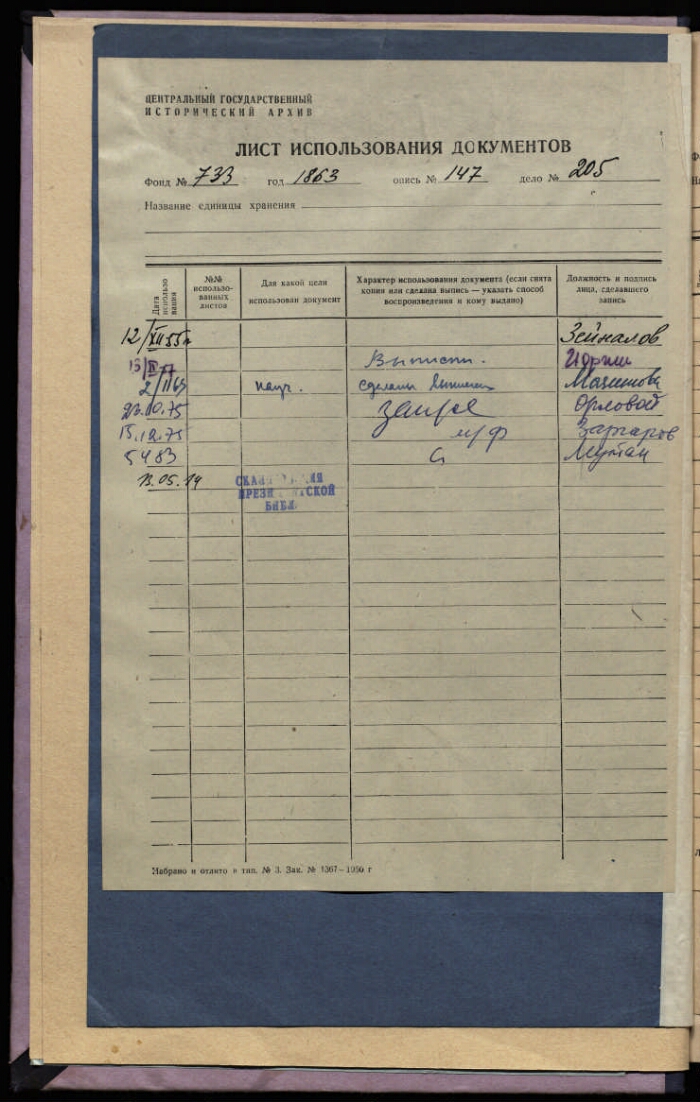 ЦЕНТРАЛЬНЫЙ ГОСУДАРСТВЕННЫЙ
ИСТОРИЧЕСКИЙ АРХИВ
ЛИСТ ИСПОЛЬЗОВАНИЯ ДОКУМЕНТОВ
Фонд № 733 год 1863 опись № 147 дело № 205
Название единицы хранения
Дата использования
№№ использо-ванных листов
Для какой цели использован документ
Характер использования документа (если снята копия или сделана выпись — указать способ воспроизведения и кому выдано)
Должность и подпись лица, сделавшего запись
12/XII 55г Зейналов
Выписки.
2/II 69 науч. сделаны выписки
23.10.75 Орловой
15.12.75 м/ф
5 4 83
13.05.14 БИБЛ
Набрано и отлито в тип. № 3. Зак. № 1367—1950 г